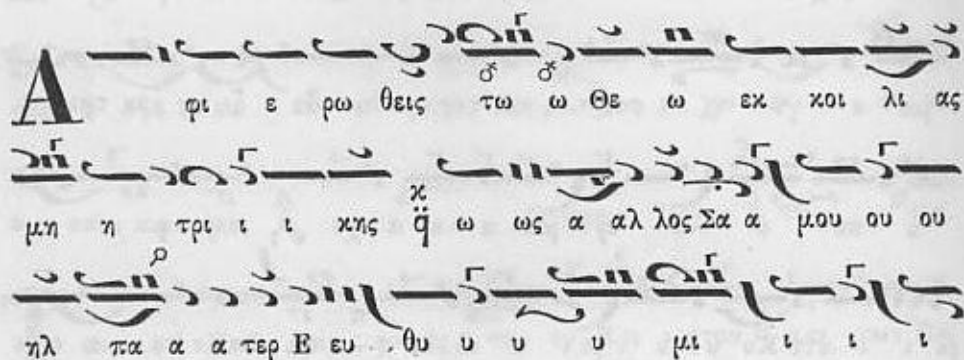 Α φι ε ρω θεις τω ω Θε ω εκ κοι λι ας
μη η τρι ι κης ω ως α αλ λος Σα α μου ου ου
ηλ πα α α τερ Ε ευ θυ υ υ υ μι ι ι ι